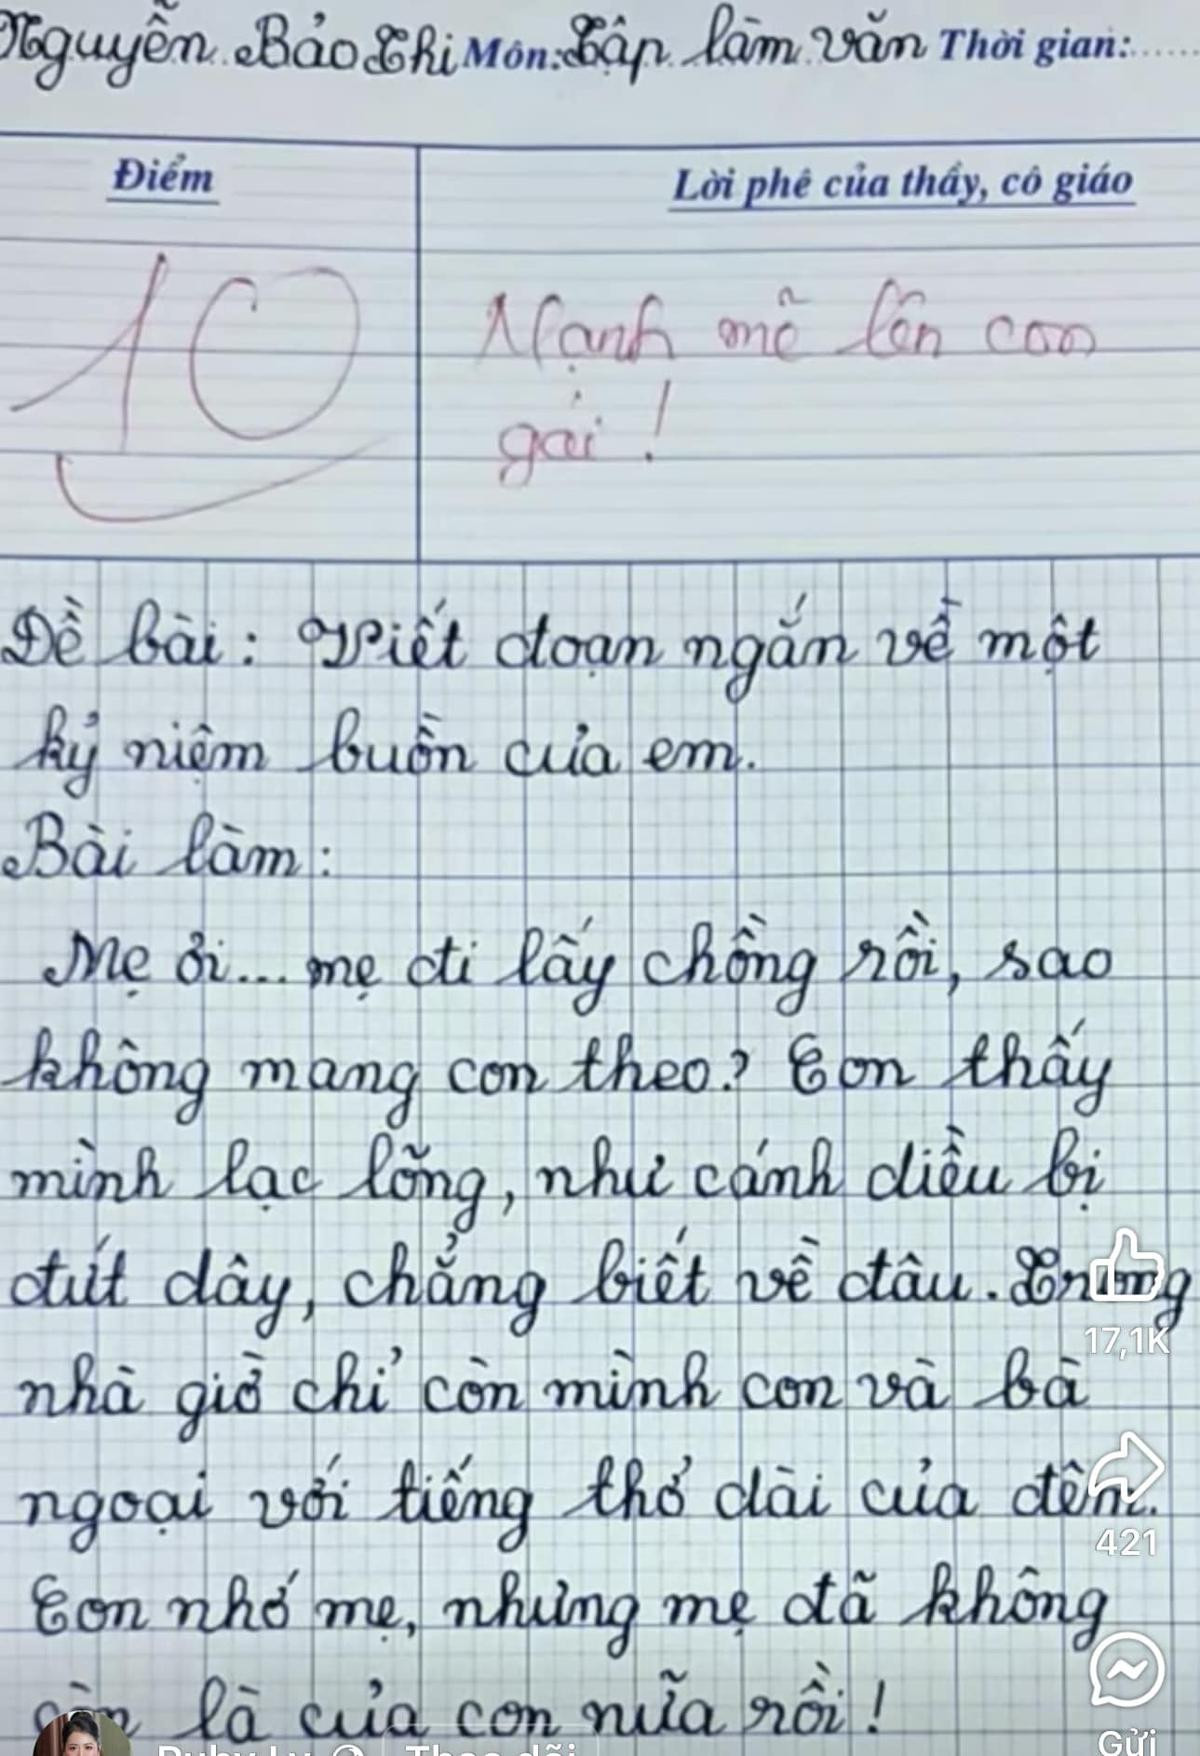 Nguyễn Bảo Thi Môn: Tập làm văn Thời gian:......
Điểm
Lời phê của thầy, cô giáo
10
Mạnh mẽ lên con
gái!
Đề bài: Viết đoạn ngắn về một
kỷ niệm buồn của em.
Bài làm:
Mẹ ơi... mẹ đi lấy chồng rồi, sao
không mang con theo? Con thấy
mình lạc lõng, như cánh diều bị
đứt dây, chẳng biết về đâu. Trong
nhà giờ chỉ còn mình con và bà
ngoại với tiếng thở dài của đêm.
Con nhớ mẹ, nhưng mẹ đã không
còn là của con nữa rồi!
17,1K
421
Gửi
Ruby Ly
Theo dõi